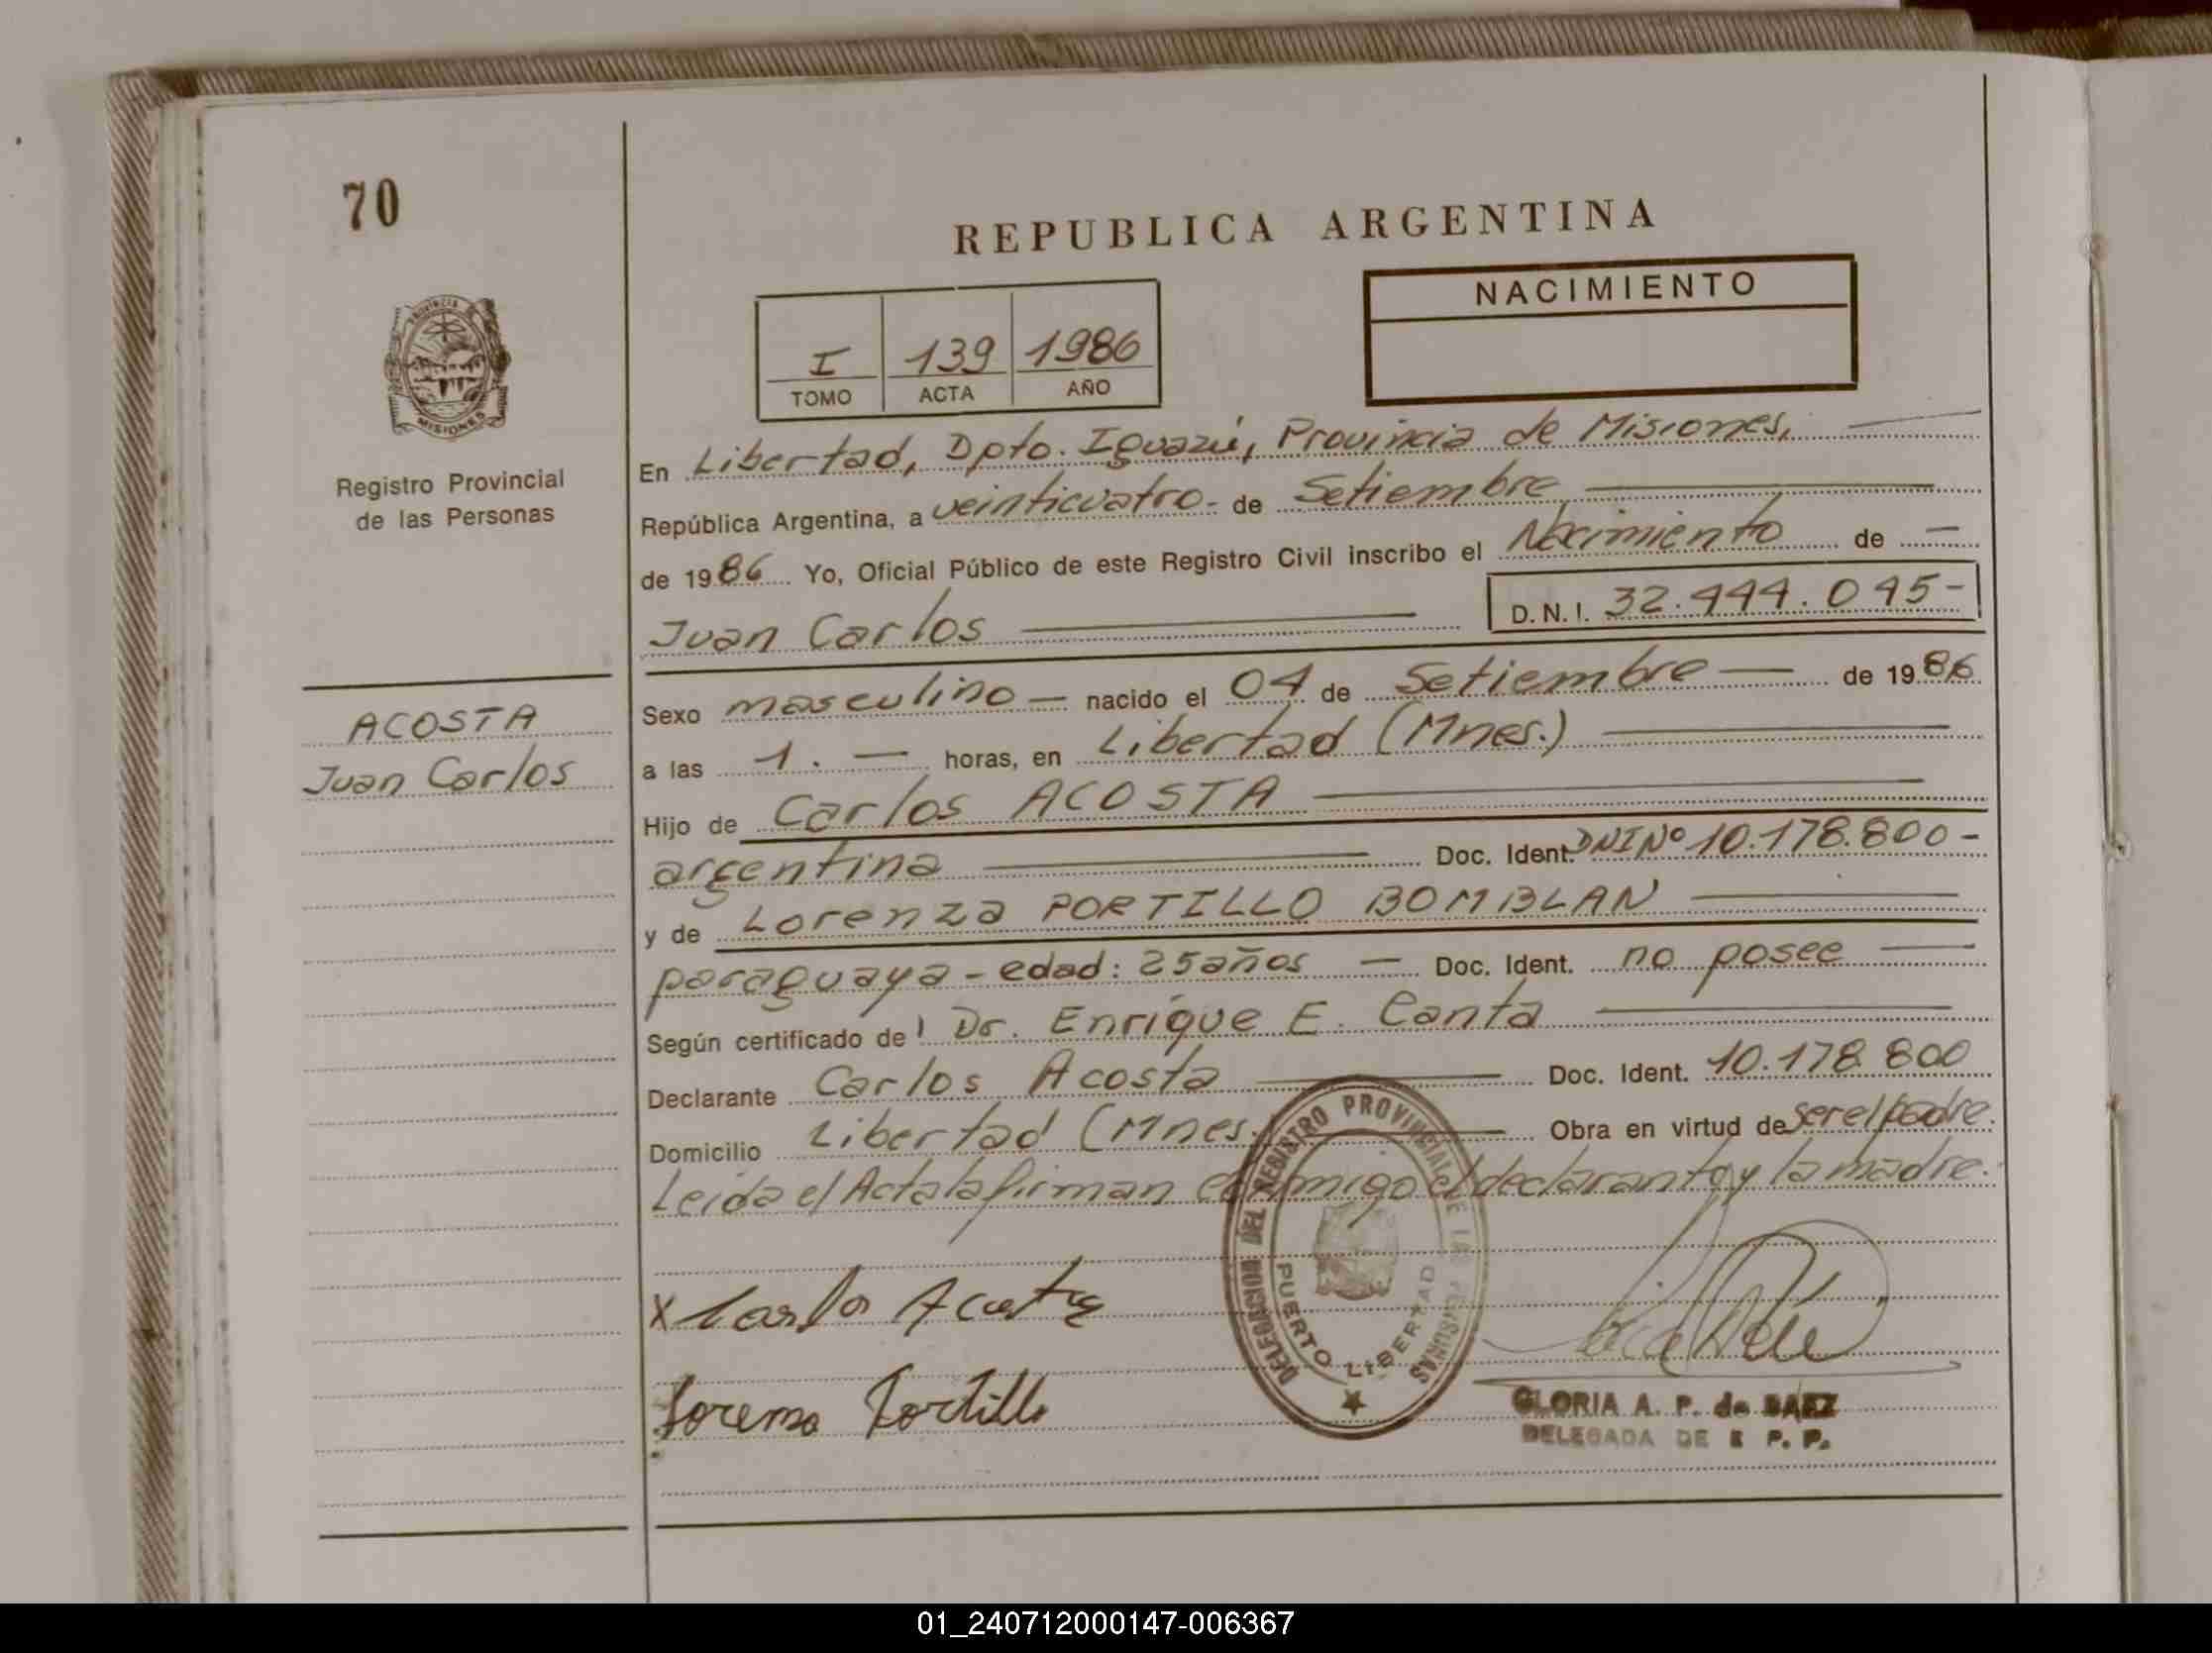 70
REPUBLICA ARGENTINA
NACIMIENTO
I 139 1986
TOMO ACTA AÑO
PROVINCIA DE
MISIONES
Registro Provincial
de las Personas
ACOSTA
Juan Carlos
En Libertad, Dpto. Iguazú, Provincia de Misiones,
República Argentina, a veinticuatro - de Setiembre
de 1986 Yo, Oficial Público de este Registro Civil inscribo el Nacimiento de —
Juan Carlos D.N.I. 32.444.045-
Sexo masculino — nacido el 04 de Setiembre — de 1986
a las 1. — horas, en Libertad (Mnes.)
Hijo de Carlos ACOSTA
argentina Doc. Ident. DNI Nº 10.178.800-
y de Lorenza PORTILLO BOMBLAN
paraguaya - edad: 25 años — Doc. Ident. no posee
Según certificado de Dr. Enrique E. Canta
Declarante Carlos Acosta Doc. Ident. 10.178.800
Domicilio Libertad (Mnes.) Obra en virtud de ser el padre.
Leída el Acta la firman conmigo el declarante y la madre.
x Carlos Acosta
Lorenza Portillo
DELEGACION DEL REGISTRO PROVINCIAL DE LAS PERSONAS
PUERTO LIBERTAD
GLORIA A. P. de BAEZ
DELEGADA DE R P. P.
01_240712000147-006367